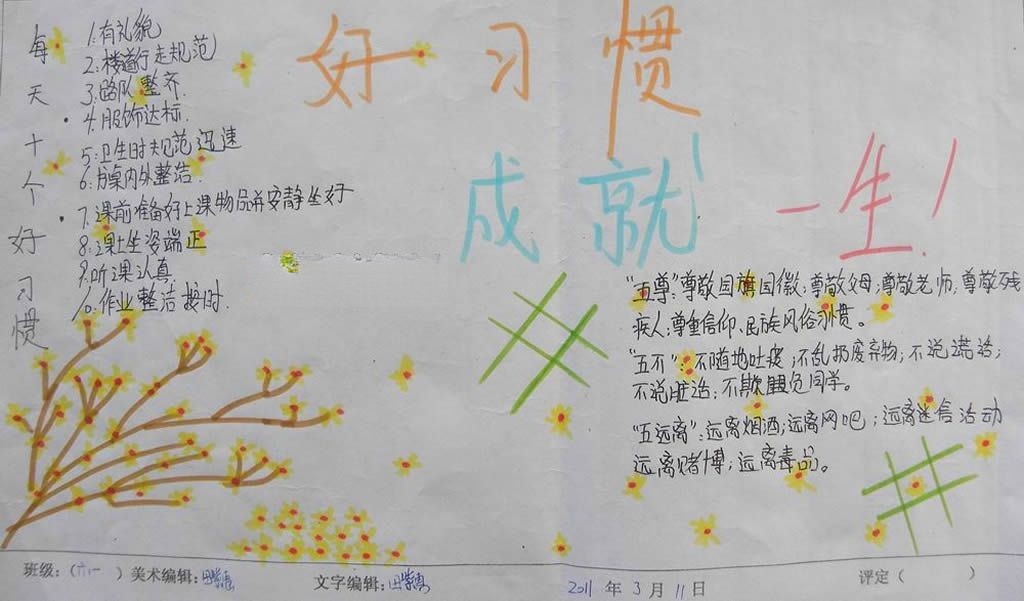 好习惯
成就一生！
每天十个好习惯
1.有礼貌
2.楼道行走规范
3.路队整齐.
4.服饰达标.
5.卫生时规范迅速
6.方桌内外整洁.
7.课前准备好上课物品并安静坐好
8.课上坐姿端正
9.听课认真
10.作业整洁按时.
"五尊":尊敬国旗国徽;尊敬父母;尊敬老师;尊敬残
疾人;尊重信仰、民族风俗习惯。
"五不":不随地吐痰;不乱扔废弃物;不说谎话;
不说脏话;不欺负同学。
"五远离":远离烟酒;远离网吧;远离迷信活动
远离赌博;远离毒品。
班级:(六一)美术编辑:田紫 文字编辑:田紫 2011年3月11日 评定( )